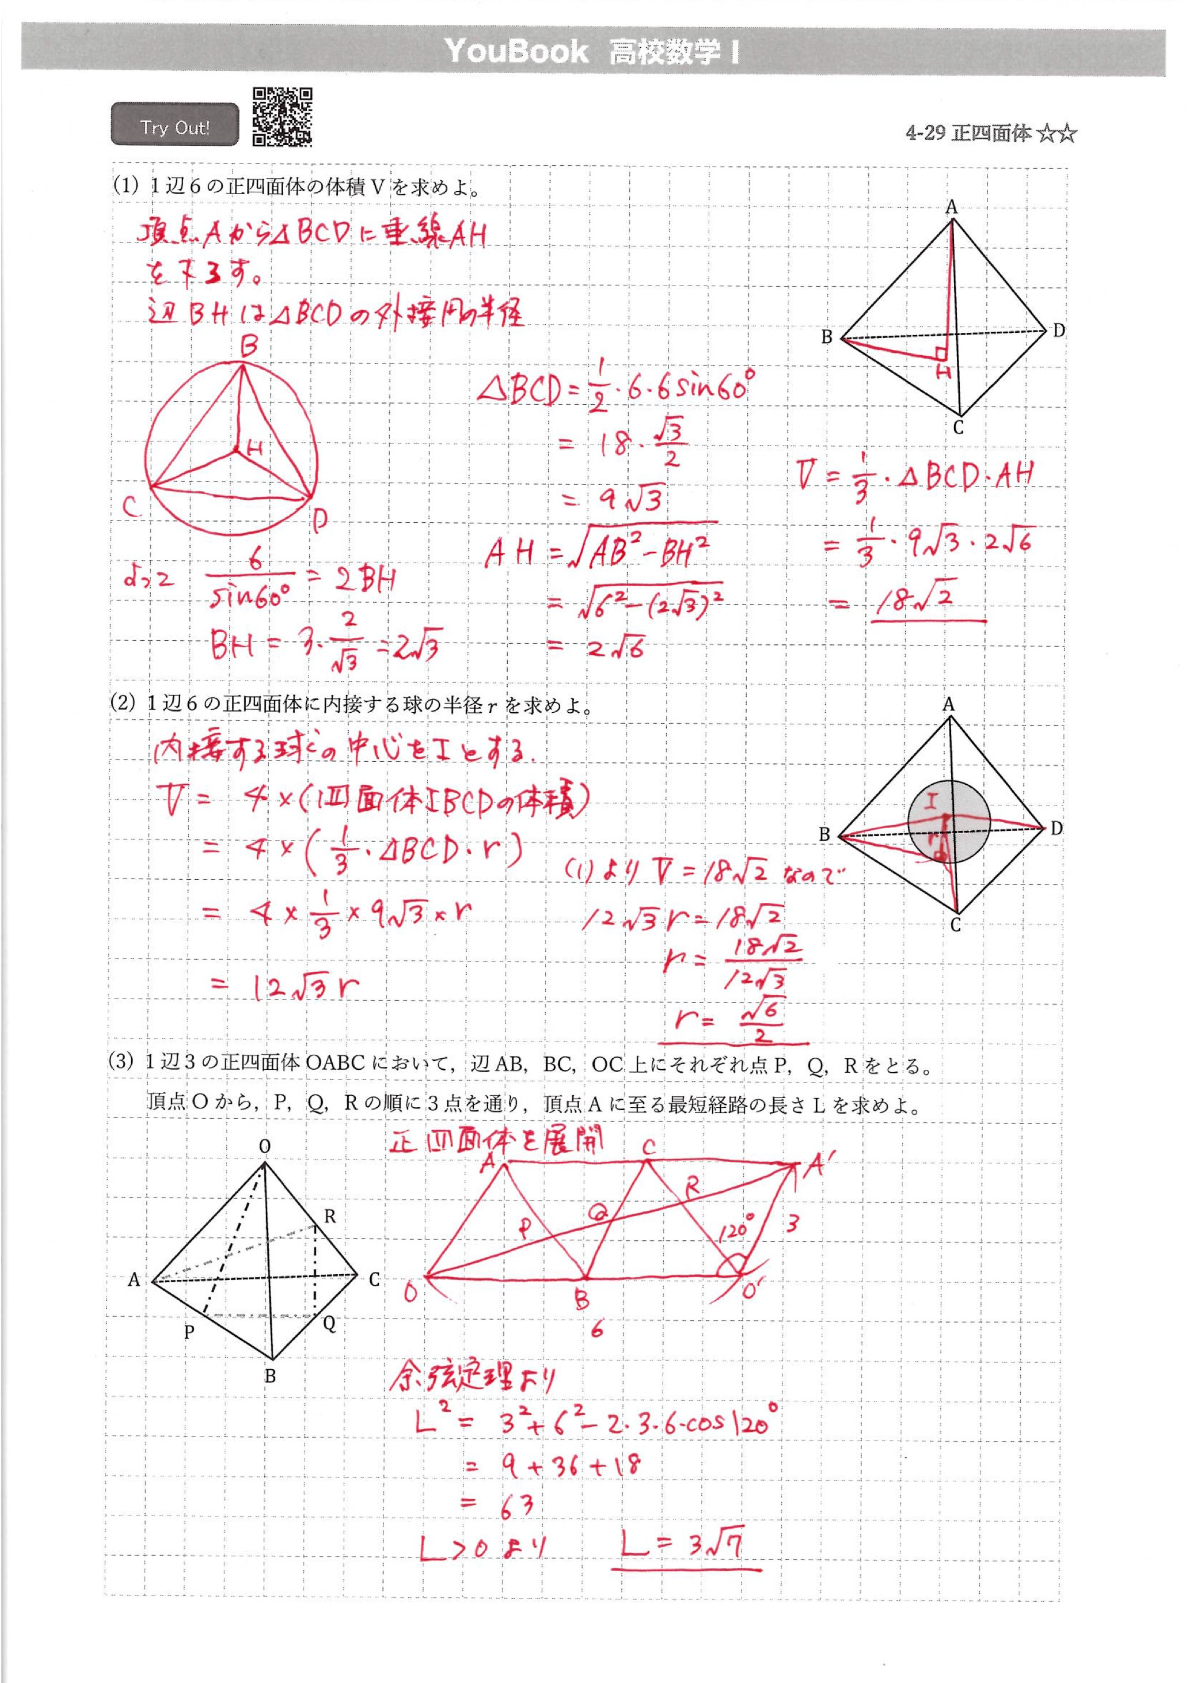 YouBook 高校数学 I
Try Out!
4-29 正四面体 ☆☆
(1) 1辺6の正四面体の体積Vを求めよ。
頂点Aから△BCDに垂線AH
を下ろす。
辺BHは△BCDの外接円の半径
A
B
D
H
C
B
H
C
D
よって 6/sin60° = 2BH
BH = 3・2/√3 = 2√3
△BCD = 1/2・6・6sin60°
= 18・√3/2
= 9√3
AH = √(AB²-BH²)
= √(6²-(2√3)²)
= 2√6
V = 1/3・△BCD・AH
= 1/3・9√3・2√6
= 18√2
(2) 1辺6の正四面体に内接する球の半径rを求めよ。
内接する球の中心をIとする.
V = 4×(四面体IBCDの体積)
= 4×(1/3・△BCD・r)
= 4×1/3×9√3×r
= 12√3r
(1)より V=18√2 なので
12√3r=18√2
r= 18√2/12√3
r= √6/2
A
I
B
r
D
C
(3) 1辺3の正四面体OABCにおいて，辺AB，BC，OC上にそれぞれ点P，Q，Rをとる。
頂点Oから，P，Q，Rの順に3点を通り，頂点Aに至る最短経路の長さLを求めよ。
O
R
A
C
P
Q
B
正四面体を展開
A
C
A'
R
Q
P
120°
3
O
B
O'
6
余弦定理より
L² = 3²+6²-2・3・6・cos120°
= 9+36+18
= 63
L>0より L = 3√7